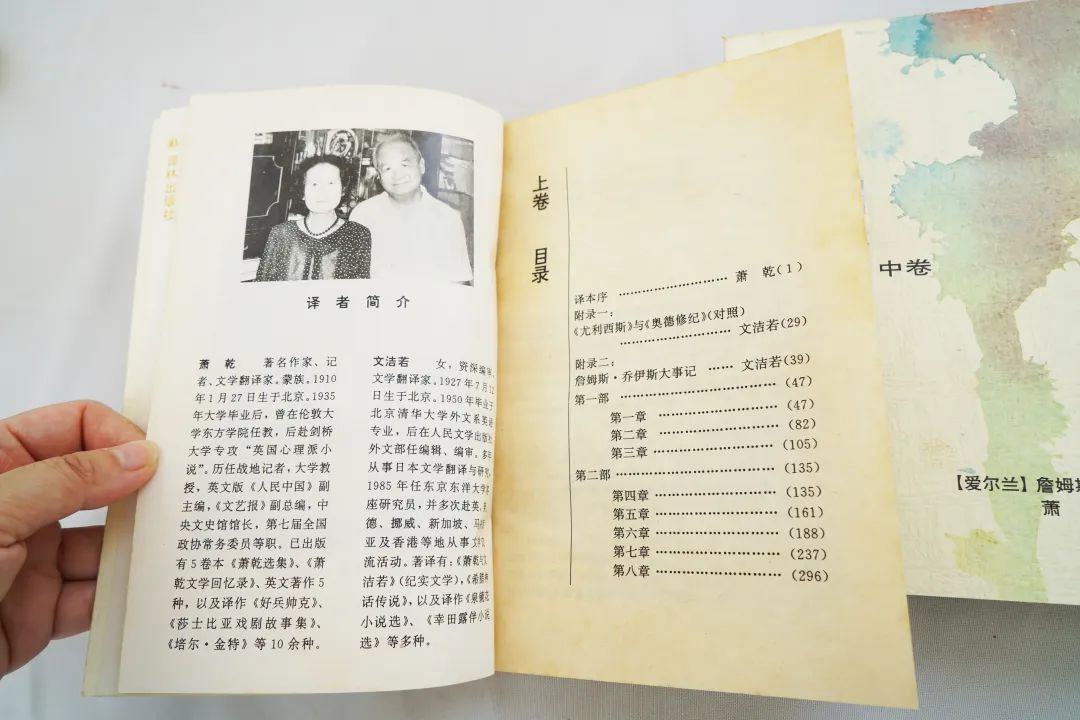 译林出版社
译者简介
萧 乾 著名作家、记
者、文学翻译家。蒙族。1910
年1月27日生于北京。1935
年大学毕业后，曾在伦敦大
学东方学院任教，后赴剑桥
大学专攻“英国心理派小
说”。历任战地记者，大学教
授，英文版《人民中国》副
主编，《文艺报》副总编，中
央文史馆馆长，第七届全国
政协常务委员等职。已出版
有5卷本《萧乾选集》、《萧
乾文学回忆录》、英文著作5
种，以及译作《好兵帅克》、
《莎士比亚戏剧故事集》、
《培尔·金特》等10余种。
文洁若 女，资深编审，
文学翻译家。1927年7月
日生于北京。1950年毕业于
北京清华大学外文系英语
专业，后在人民文学出版社
外文部任编辑、编审。多年
从事日本文学翻译与研究，
1985年任东京东洋大学
座研究员，并多次赴英、
德、挪威、新加坡、马
亚及香港等地从事文学
流活动。著译有：《萧乾与文
洁若》（纪实文学），《希腊神
话传说》，以及译作《泉镜花
小说选》、《幸田露伴小说
选》等多种。
上卷 目录
译本序 ………………………… 萧 乾（1）
附录一：
《尤利西斯》与《奥德修纪》（对照）
………………………… 文洁若（29）
附录二：
詹姆斯·乔伊斯大事记 …… 文洁若（39）
第一部 ………………………………（47）
第一章 …………………………（47）
第二章 …………………………（82）
第三章 …………………………（105）
第二部 ………………………………（135）
第四章 …………………………（135）
第五章 …………………………（161）
第六章 …………………………（188）
第七章 …………………………（237）
第八章 …………………………（296）
中卷
【爱尔兰】詹姆斯
萧